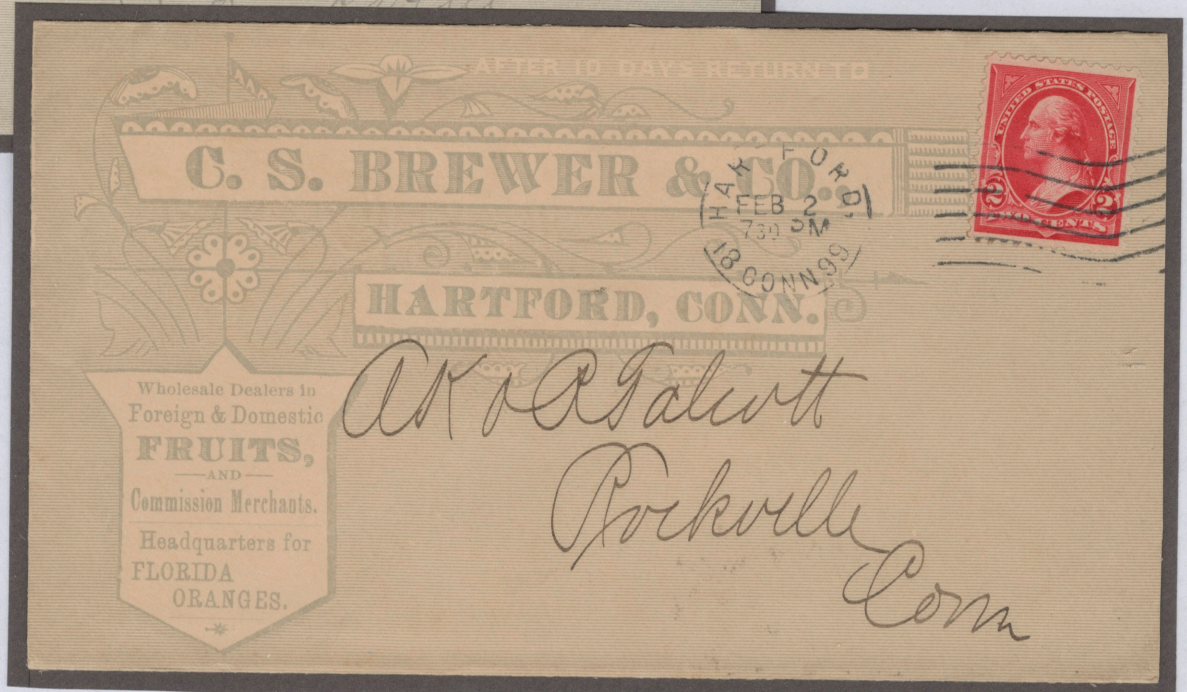 AFTER 10 DAYS RETURN TO
C. S. BREWER & CO.,
HARTFORD, CONN.
Wholesale Dealers in
Foreign & Domestic
FRUITS,
AND
Commission Merchants.
Headquarters for
FLORIDA
ORANGES.
HARTFORD,
FEB 2
730 PM
18 CONN. 99
UNITED STATES POSTAGE
2 2
TWO CENTS
AK & C Talcott
Rockville
Conn